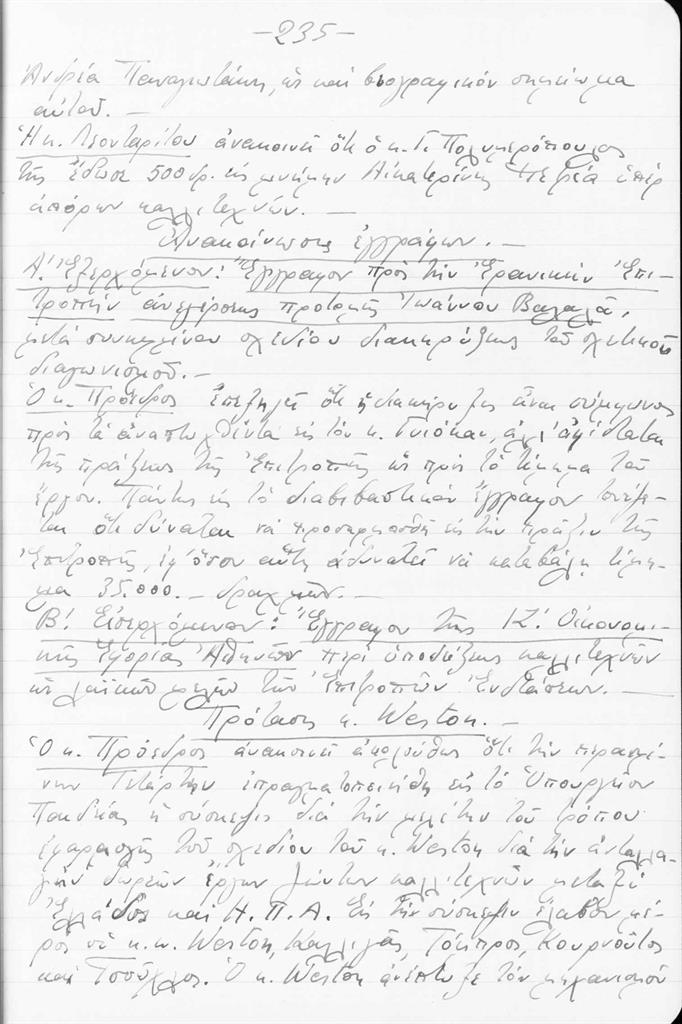 -235-
Ἀνδρέα Παναγιωτάκη, ὡς καὶ βιογραφικὸν σημείωμα
αὐτοῦ. —
Ἡ κ. Λεονταρίτου ἀνακοινοῖ ὅτι ὁ κ. Γ. Πολυμερόπουλος
τῆς ἔδωσε 500 δρ. εἰς μνήμην Αἰκατερίνης ὑπὲρ
ἀπόρων καλλιτεχνῶν. —
Ἀνακοίνωσις ἐγγράφων. —
Α! Ἐξερχόμενον: Ἔγγραφον πρὸς τὴν Ἐρανικὴν Ἐπι-
τροπὴν ἀνεγέρσεως προτομῆς Ἰωάννου
μετὰ συνημμένου σχεδίου διακηρύξεως τοῦ σχετικοῦ
διαγωνισμοῦ. —
Ὁ κ. Πρόεδρος ἐπεξηγεῖ ὅτι ἡ διακήρυξις εἶναι σύμφωνος
πρὸς τὰ ἀναπτυχθέντα εἰς τὸν κ. ἀλλ' ἀφίσταται
τῆς πράξεως τῆς Ἐπιτροπῆς ὡς πρὸς τὸ τίμημα τοῦ
ἔργου. Πάντως εἰς τὸ διαβιβαστικὸν ἔγγραφον τονίζε-
ται ὅτι δύναται νὰ προσαρμοσθῇ εἰς τὴν πρᾶξιν τῆς
Ἐπιτροπῆς, ἐφ' ὅσον αὕτη ἀδυνατεῖ νὰ καταβάλῃ τίμη-
μα 35.000. — δραχμῶν. —
Β! Εἰσερχόμενον: Ἔγγραφον τῆς ΙΖ! Οἰκονομι-
κῆς Ἐφορίας Ἀθηνῶν περὶ ὑποδείξεως καλλιτεχνῶν
ὡς λαϊκῶν μελῶν τῶν Ἐπιτροπῶν Ἐνστάσεων. —
Πρότασις κ. Weston. —
Ὁ κ. Πρόεδρος ἀνακοινοῖ ἀκολούθως ὅτι τὴν περασμέ-
νην Τετάρτην ἐπραγματοποιήθη εἰς τὸ Ὑπουργεῖον
Παιδείας ἡ σύσκεψις διὰ τὴν μελέτην τοῦ τρόπου
ἐφαρμογῆς τοῦ σχεδίου τοῦ κ. Weston διὰ τὴν ἀνταλλα-
γὴν δωρεῶν ἔργων ζώντων καλλιτεχνῶν μεταξὺ
Ἑλλάδος καὶ Η.Π.Α. Εἰς τὴν σύσκεψιν ἔλαβον μέ-
ρος οἱ κ.κ. Weston, Καλλιγᾶς, Τόμπρος, Κουρνοῦτος
καὶ Τσοῦχλος. Ὁ κ. Weston ἀνέπτυξε τὸν μηχανισμὸν